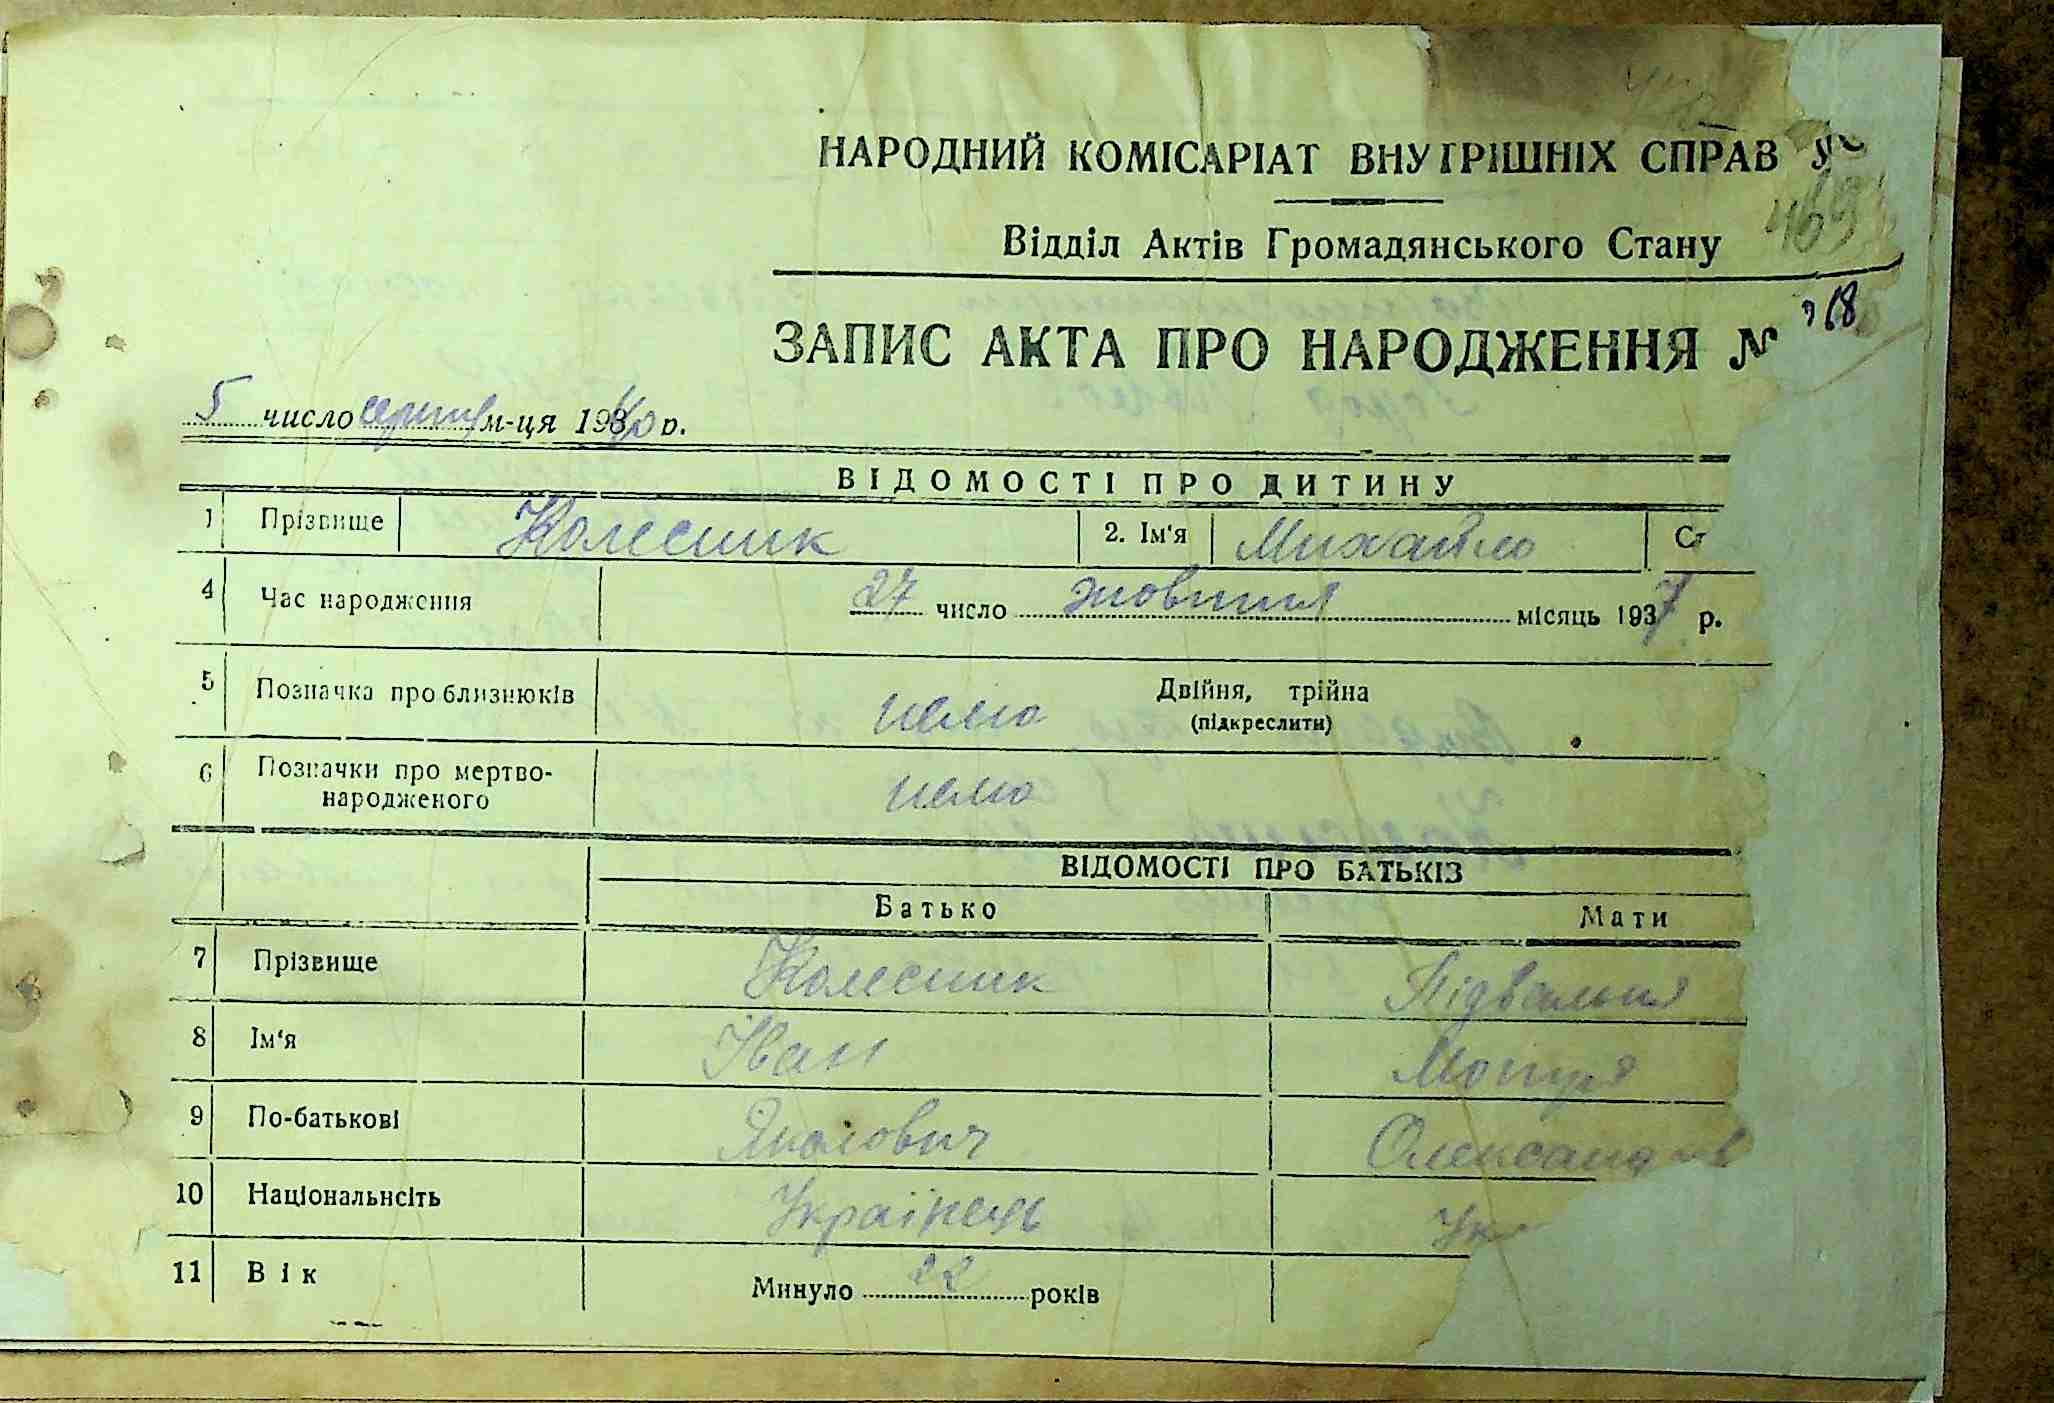 НАРОДНИЙ КОМІСАРІАТ ВНУТРІШНІХ СПРАВ У
469
Відділ Актів Громадянського Стану
ЗАПИС АКТА ПРО НАРОДЖЕННЯ № 168
5 число серпня м-ця 1940 р.
ВІДОМОСТІ ПРО ДИТИНУ
1 Прізвище Колесник 2. Ім'я Михайло Ст
4 Час народження 27 число жовтня місяць 1937 р.
5 Позначка про близнюків немо Двійня, трійна
(підкреслити)
6 Позначки про мертво-
народженого немо
ВІДОМОСТІ ПРО БАТЬКІВ
Батько Мати
7 Прізвище Колесник Підвальня
8 Ім'я Іван Мотря
9 По-батькові Яколович Олександрів
10 Національнсіть Українець Ук
11 Вік Минуло 22 років